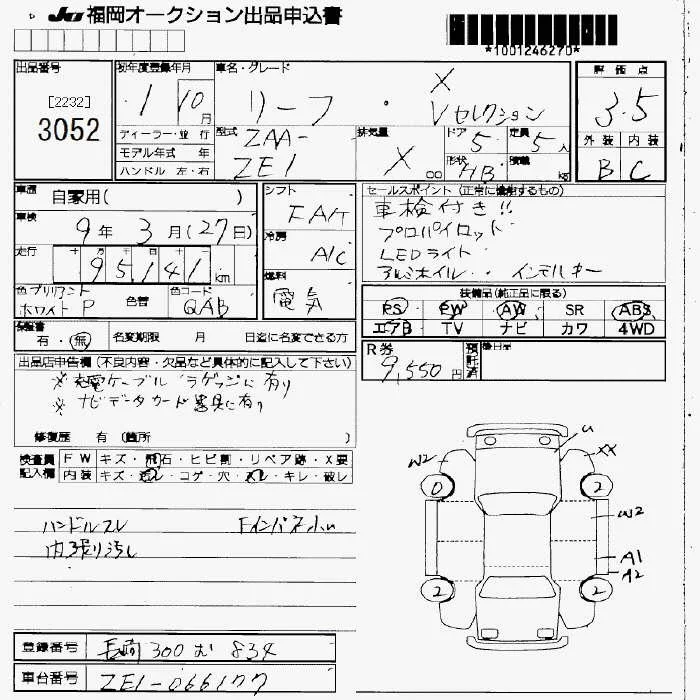 JU 福岡オークション出品申込書
*1001246270*
出品番号
[2232]
3052
初年度登録年月
1 10 月
ディーラー・並 行
モデル年式 年
ハンドル 左・右
車名・グレード
リーフ X
Vセレクション
型式 ZAA-
ZE1
排気量 X ○○
ドア 5
定員 5 人
形状 HB
積載 kg
評 価 点
3.5
外 装 内 装
B C
車歴 自家用( )
車検
9 年 3 月(27日)
走行
十 万 千 百 十
95,141 km
色 ブリリアント
ホワイトP
色替
色コード
QAB
シフト
FAT
冷房
A/C
燃料
電気
セールスポイント (正常に機能するもの)
車検付き!!
プロパイロット
LEDライト
アルミホイル・・ インテルキー
装備品(純正品に限る)
PS PW AW SR ABS
エアB TV ナビ カワ 4WD
保証書
有・無
名変期限 月 日迄に名変できる方
R券
9,550円
預託済
後日品
出品店申告欄 (不良内容・欠品など具体的に記入して下さい)
※充電ケーブル ラゲッジに有り
※ナビデータカード 器具に有り
修復歴 有 (箇所 )
検査員
記入欄
FW キズ・飛石・ヒビ割・リペア跡・X要
内装 キズ・汚レ・コゲ・穴・スレ・キレ・破レ
ハンドルスレ Fインパネ小U
内張り汚し
U
W2
XX
0
2
W2
A1
A2
2
2
登録番号 長崎 300 む 834
車台番号 ZE1-066177